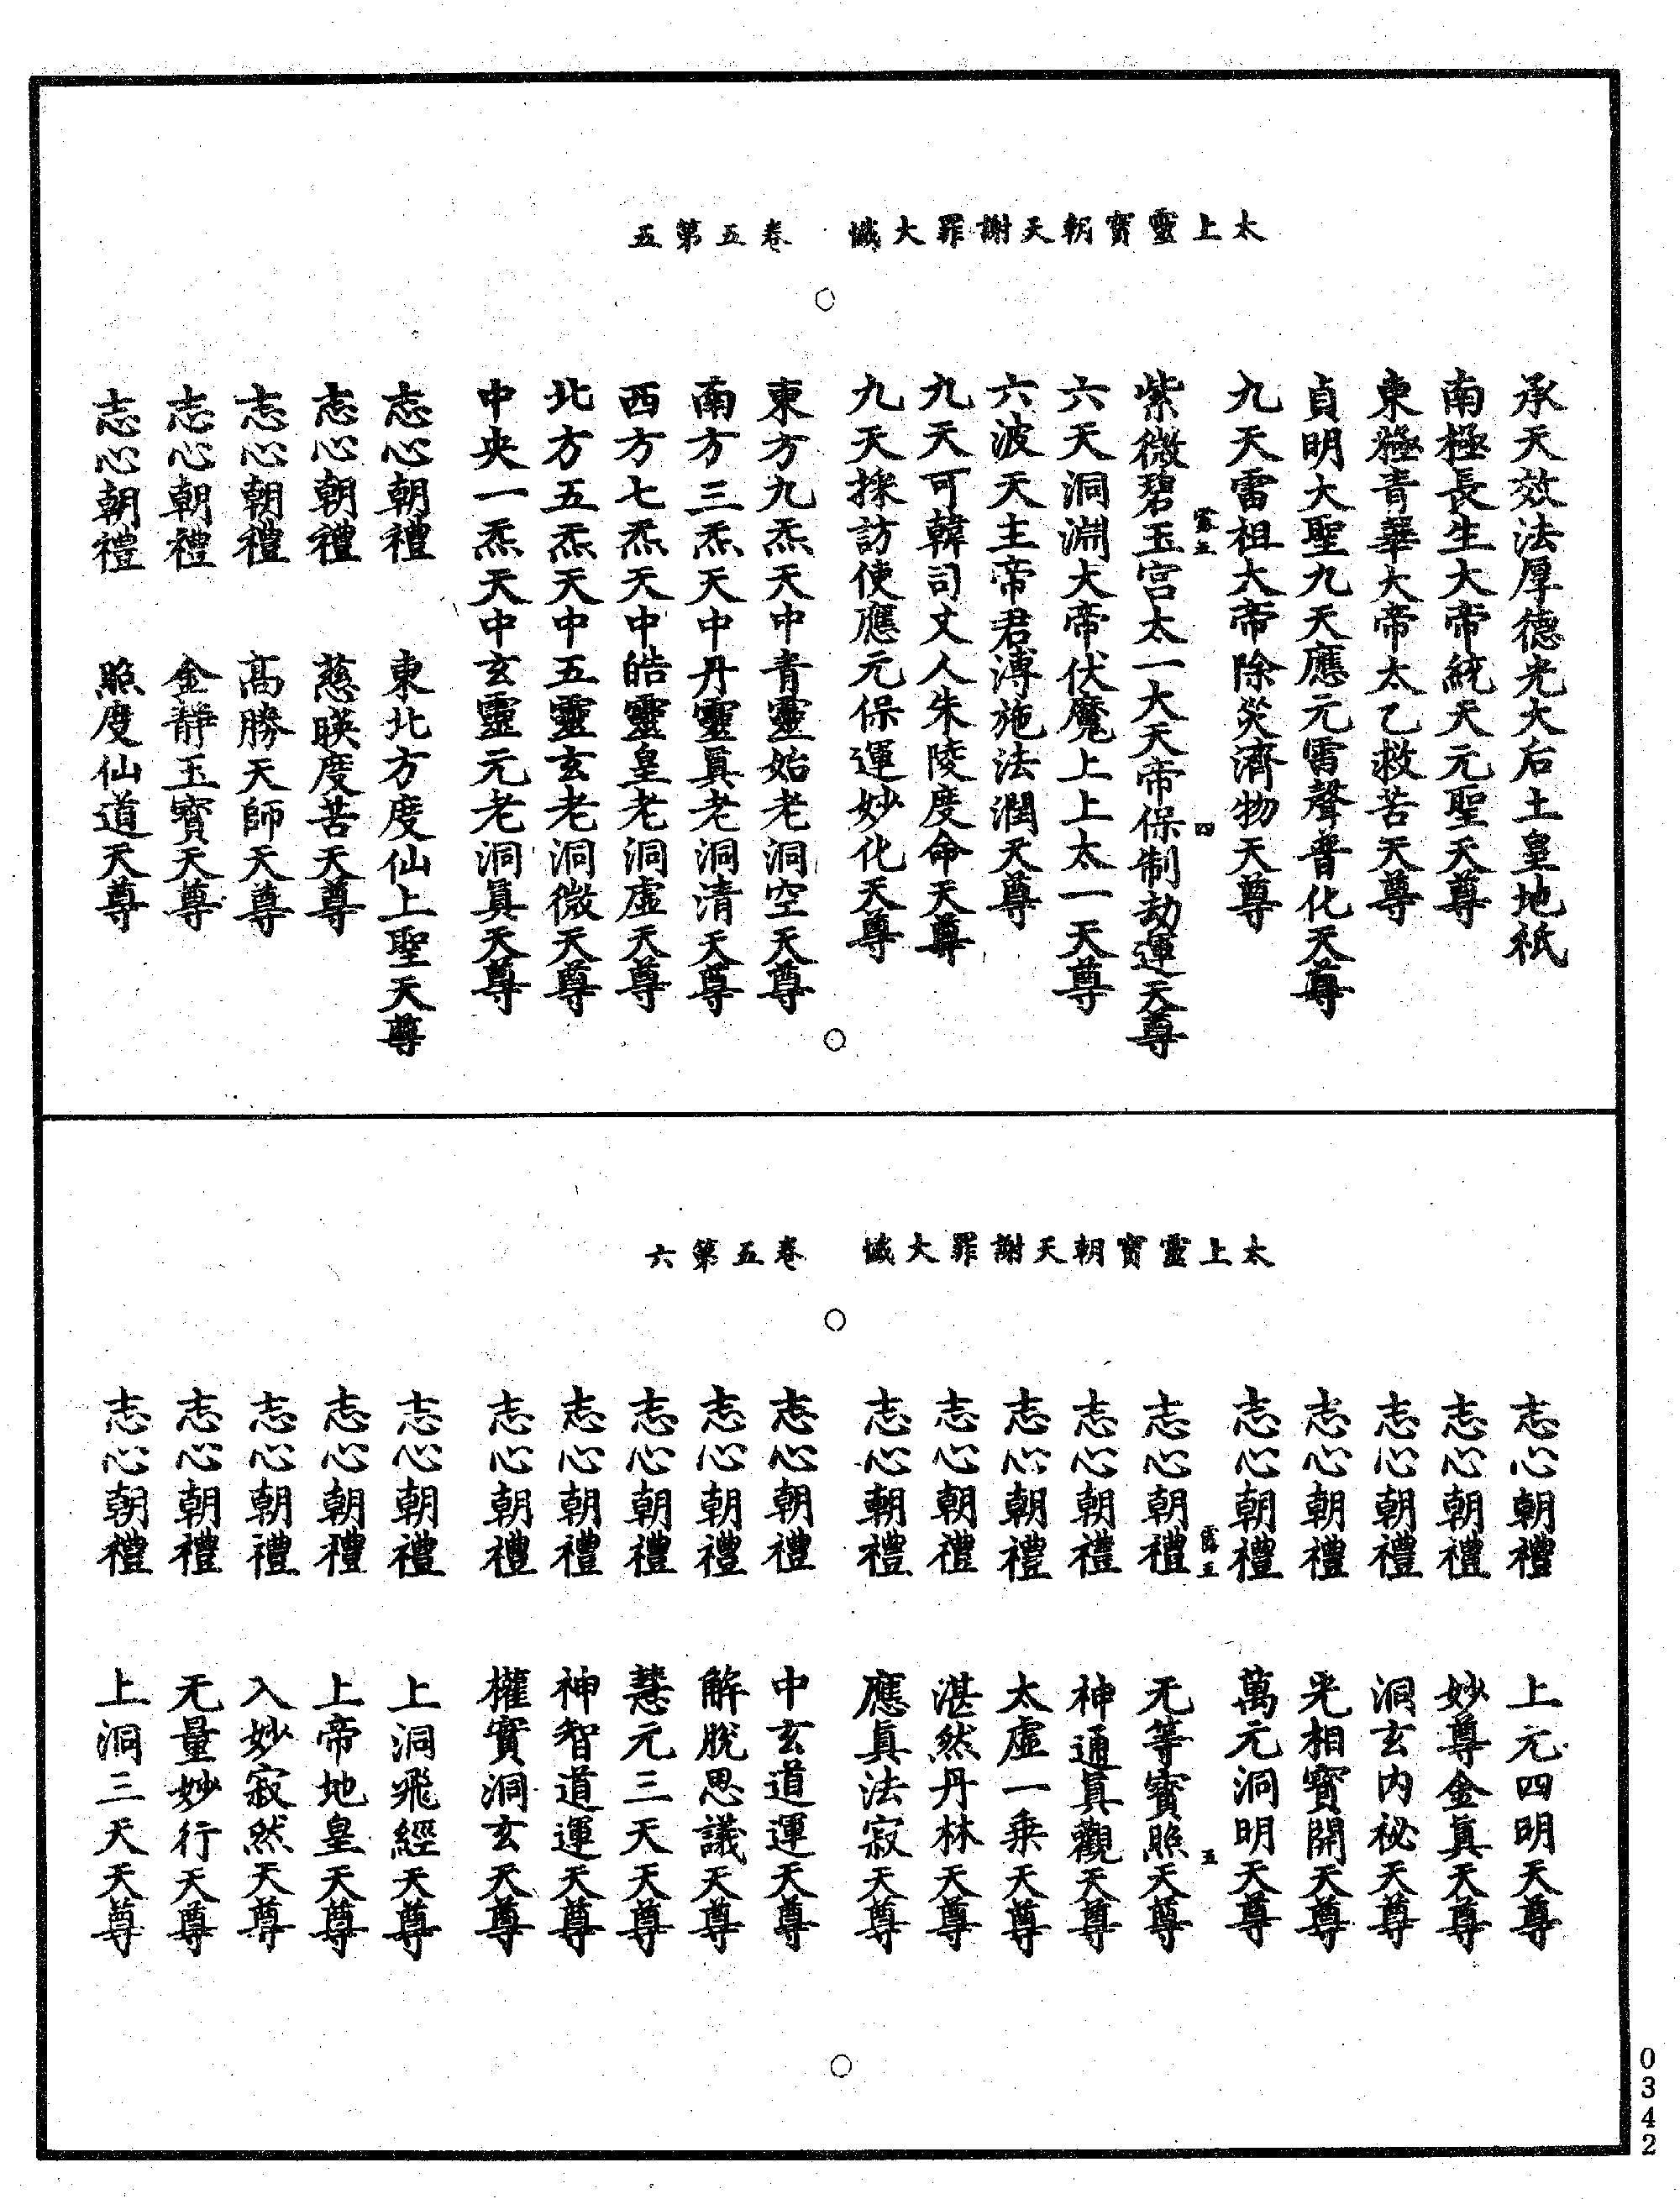 太上靈寶朝天謝罪大懺　卷五第五
承天效法厚德光大后土皇地祇
南極長生大帝統天元聖天尊
東極青華大帝太乙救苦天尊
貞明大聖九天應元雷聲普化天尊
九天雷祖大帝除災濟物天尊
紫微碧玉宮太一大天帝保制劫運天尊
六天洞淵大帝伏魔上上太一天尊
六波天主帝君溥施法潤天尊
九天可韓司丈人朱陵度命天尊
九天採訪使應元保運妙化天尊
東方九炁天中青靈始老洞空天尊
南方三炁天中丹靈眞老洞清天尊
西方七炁天中皓靈皇老洞虛天尊
北方五炁天中五靈玄老洞微天尊
中央一炁天中玄靈元老洞眞天尊
志心朝禮　東北方度仙上聖天尊
志心朝禮　慈暎度苦天尊
志心朝禮　高勝天師天尊
志心朝禮　金靜玉寶天尊
志心朝禮　照度仙道天尊
四
太上靈寶朝天謝罪大懺　卷五第六
志心朝禮　上元四明天尊
志心朝禮　妙尊金眞天尊
志心朝禮　洞玄內祕天尊
志心朝禮　光相寶開天尊
志心朝禮　萬元洞明天尊
志心朝禮　无等寶照天尊
志心朝禮　神通眞觀天尊
志心朝禮　太虛一乗天尊
志心朝禮　湛然丹林天尊
志心朝禮　應眞法寂天尊
志心朝禮　中玄道運天尊
志心朝禮　解脫思議天尊
志心朝禮　慧元三天天尊
志心朝禮　神智道運天尊
志心朝禮　權實洞玄天尊
志心朝禮　上洞飛經天尊
志心朝禮　上帝地皇天尊
志心朝禮　入妙寂然天尊
志心朝禮　无量妙行天尊
志心朝禮　上洞三天天尊
五
0342